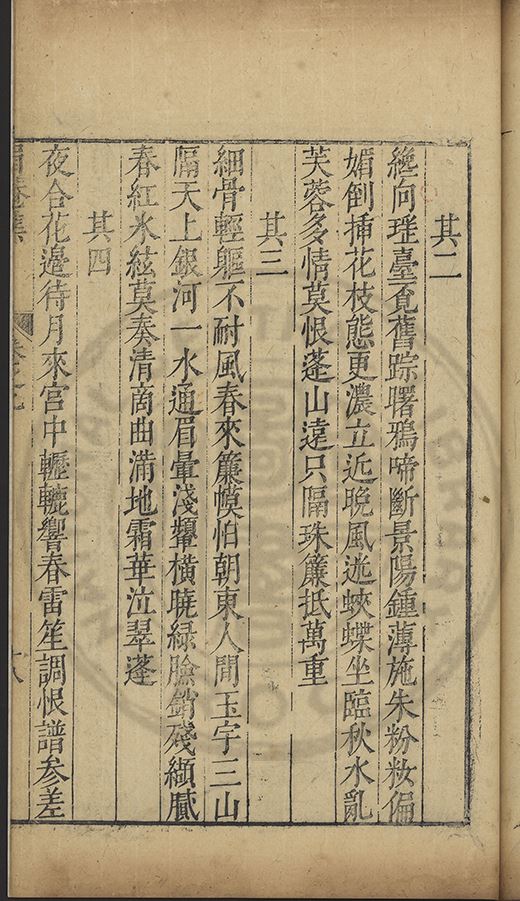 其二
纔向瑤臺覔舊踪曙鴉啼斷景陽鍾薄施朱粉妝偏
媚倒揷花枝態更濃立近晩風迷蛺蝶坐臨秋水亂
芙蓉多情莫恨蓬山遠只隔珠簾抵萬重
其三
細骨輕軀不耐風春來簾幙怕朝東人間玉宇三山
隔天上銀河一水通眉暈淺顰橫曉緑臉銷殘纈膩
春紅氷絃莫奏清商曲滿地霜華泣翠蓬
其四
夜合花邉待月來宫中轣轆響春雷笙調恨譜參差
眉菴集
卷之九
十八